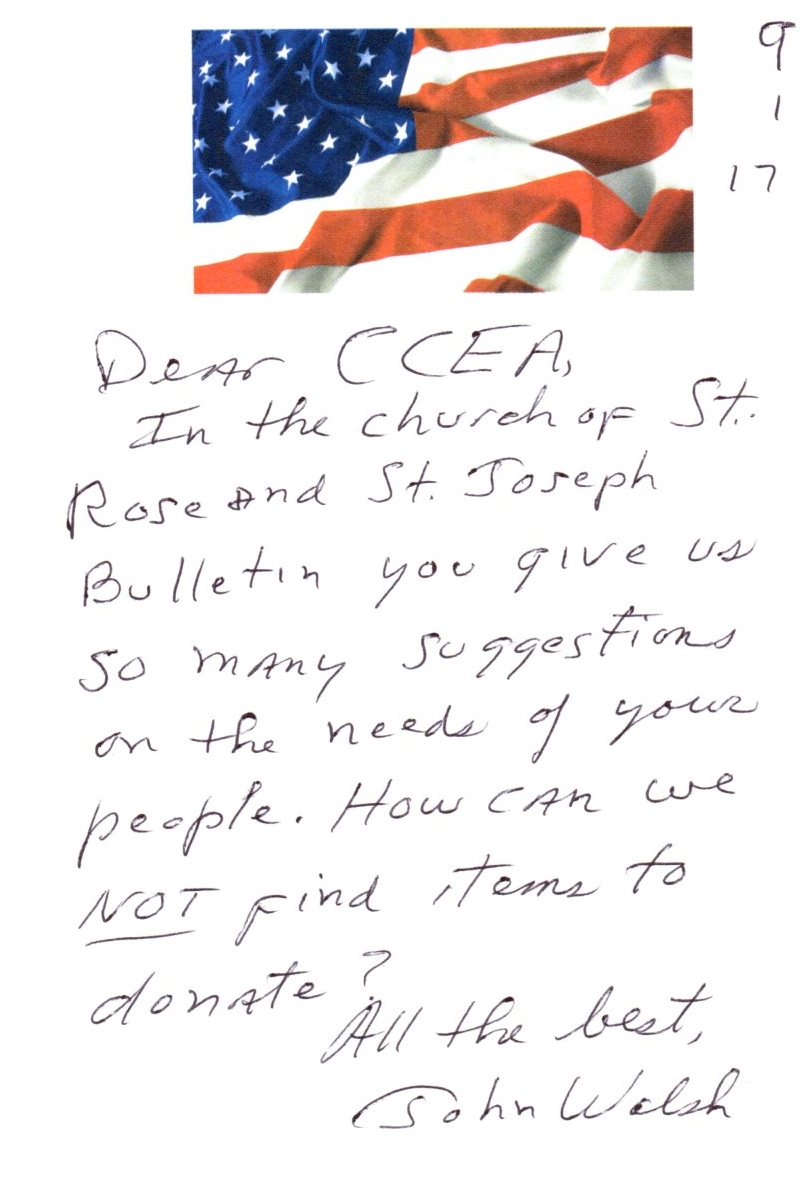 9
1
17
Dear CCEA,
In the church of St.
Rose and St. Joseph
Bulletin you give us
so many suggestions
on the needs of your
people. How can we
NOT find items to
donate?
All the best,
John Walsh